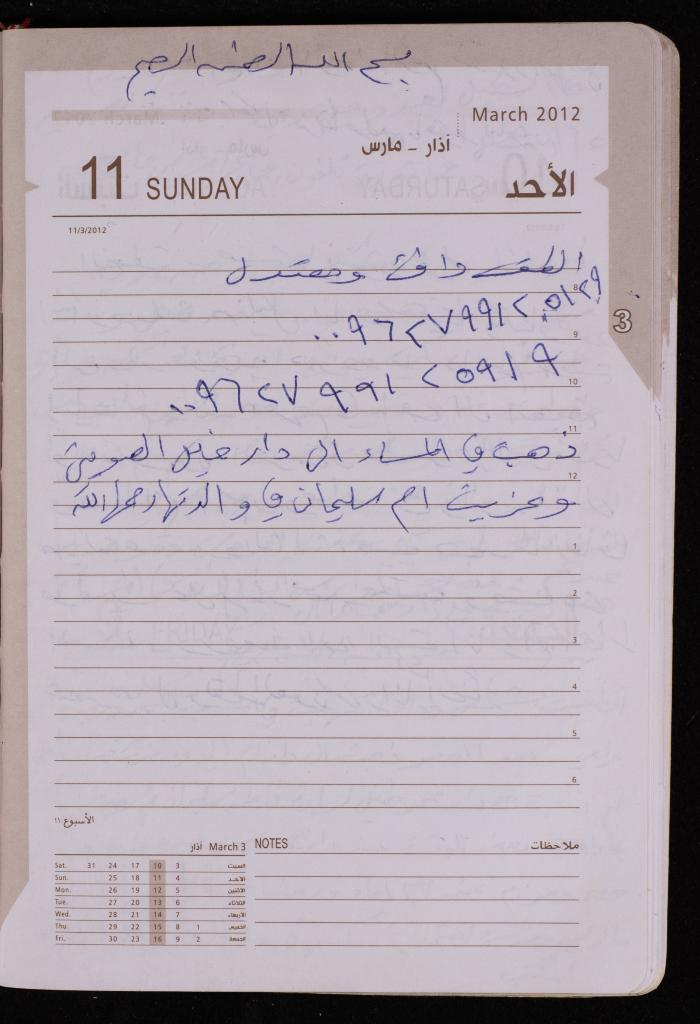 بسم الله الرحمن الرحيم
March 2012
آذار - مارس
11 SUNDAY
الأحد
11/3/2012
الطقس دافئ ومعتدل
8
9
3
٠٠٩٦٢٧٩٩١٢٠٥١٢٩
10
٠٠٩٦٢٧٩٩١٢٥٩١٩
11
ذهبت في المساء الى دار خليل
12
وعزيت ام سليمان في والدتها رحمها الله
1
2
3
4
5
6
الأسبوع ١١
آذار March 3
Sat. 31 24 17 10 3 السبت
Sun. 25 18 11 4 الأحد
Mon. 26 19 12 5 الاثنين
Tue. 27 20 13 6 الثلاثاء
Wed. 28 21 14 7 الأربعاء
Thu. 29 22 15 8 1 الخميس
Fri. 30 23 16 9 2 الجمعة
NOTES
ملاحظات